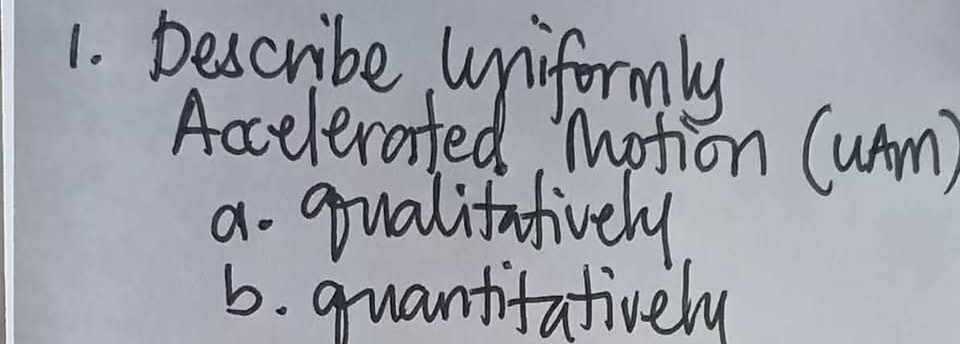 1. Describe Uniformly
Accelerated Motion (UAM)
a. qualitatively
b. quantitatively